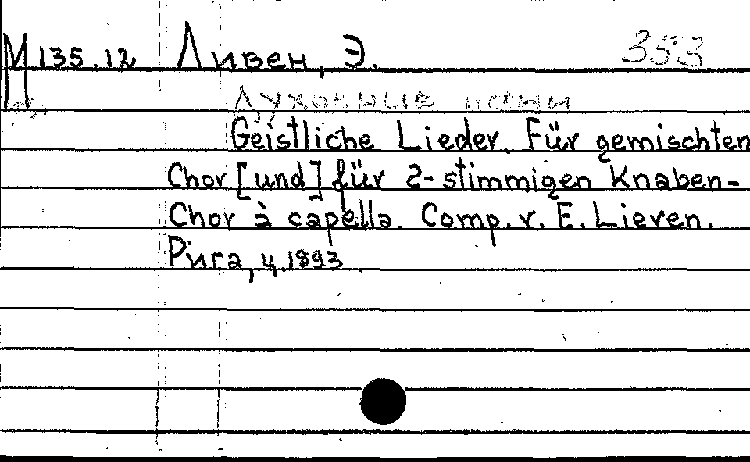 М 135.12 Ливен, Э. 353
Духовные песни
Geistliche Lieder. Für gemischten
Chor [und] für 2-stimmigen Knaben-
Chor à capella. Comp. v. E. Lieven.
Рига, ц. 1893